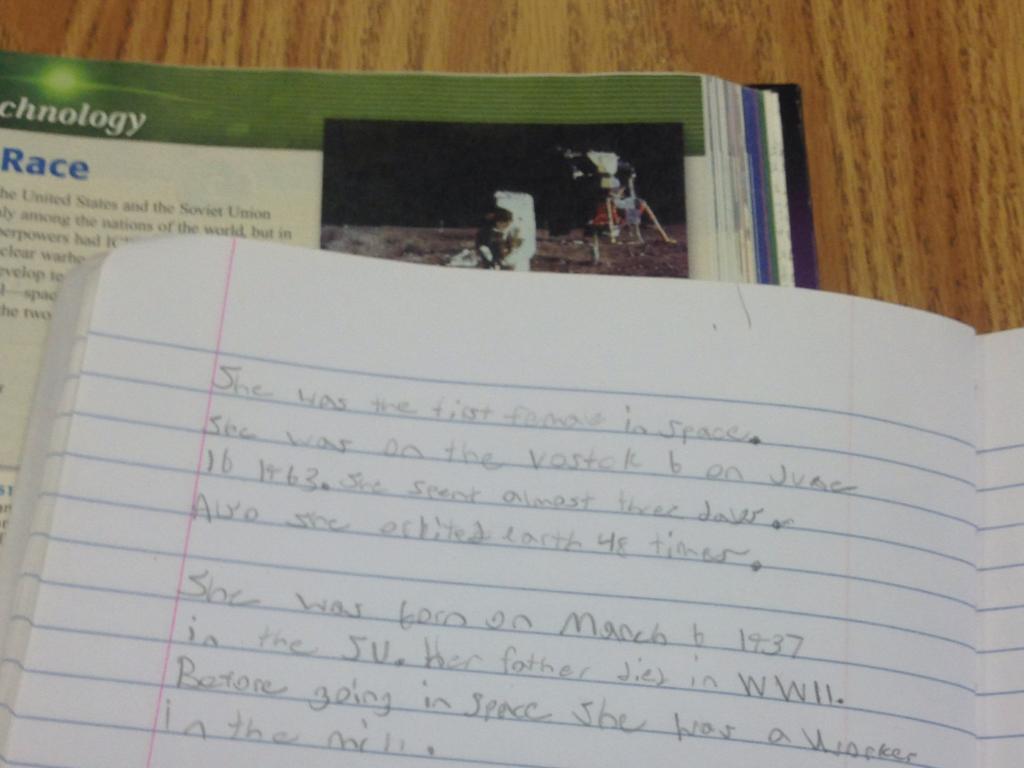 chnology
Race
he United States and the Soviet Union
ly among the nations of the world, but in
erpowers had IC
clear warhe
evelop te
l spac
the two
She was the first female in space.
She was on the Vostok 6 on June
16 1963. She spent almost three days.
Also she orbited earth 48 times.
She was born on March 6 1937
in the SU. Her father died in WWII.
Before going in space she was a worker
in the mill.